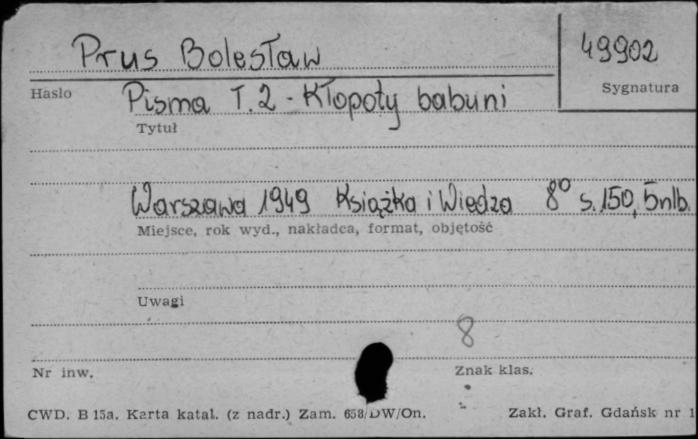 Prus Bolesław
49902
Hasło
Sygnatura
Pisma T.2 - Kłopoty babuni
Tytuł
Warszawa 1949 Książka i Wiedza 8° s. 150, 5 nlb.
Miejsce, rok wyd., nakładca, format, objętość
Uwagi
8
Nr inw.
Znak klas.
CWD. B 15a. Karta katal. (z nadr.) Zam. 658/DW/On.
Zakł. Graf. Gdańsk nr 1